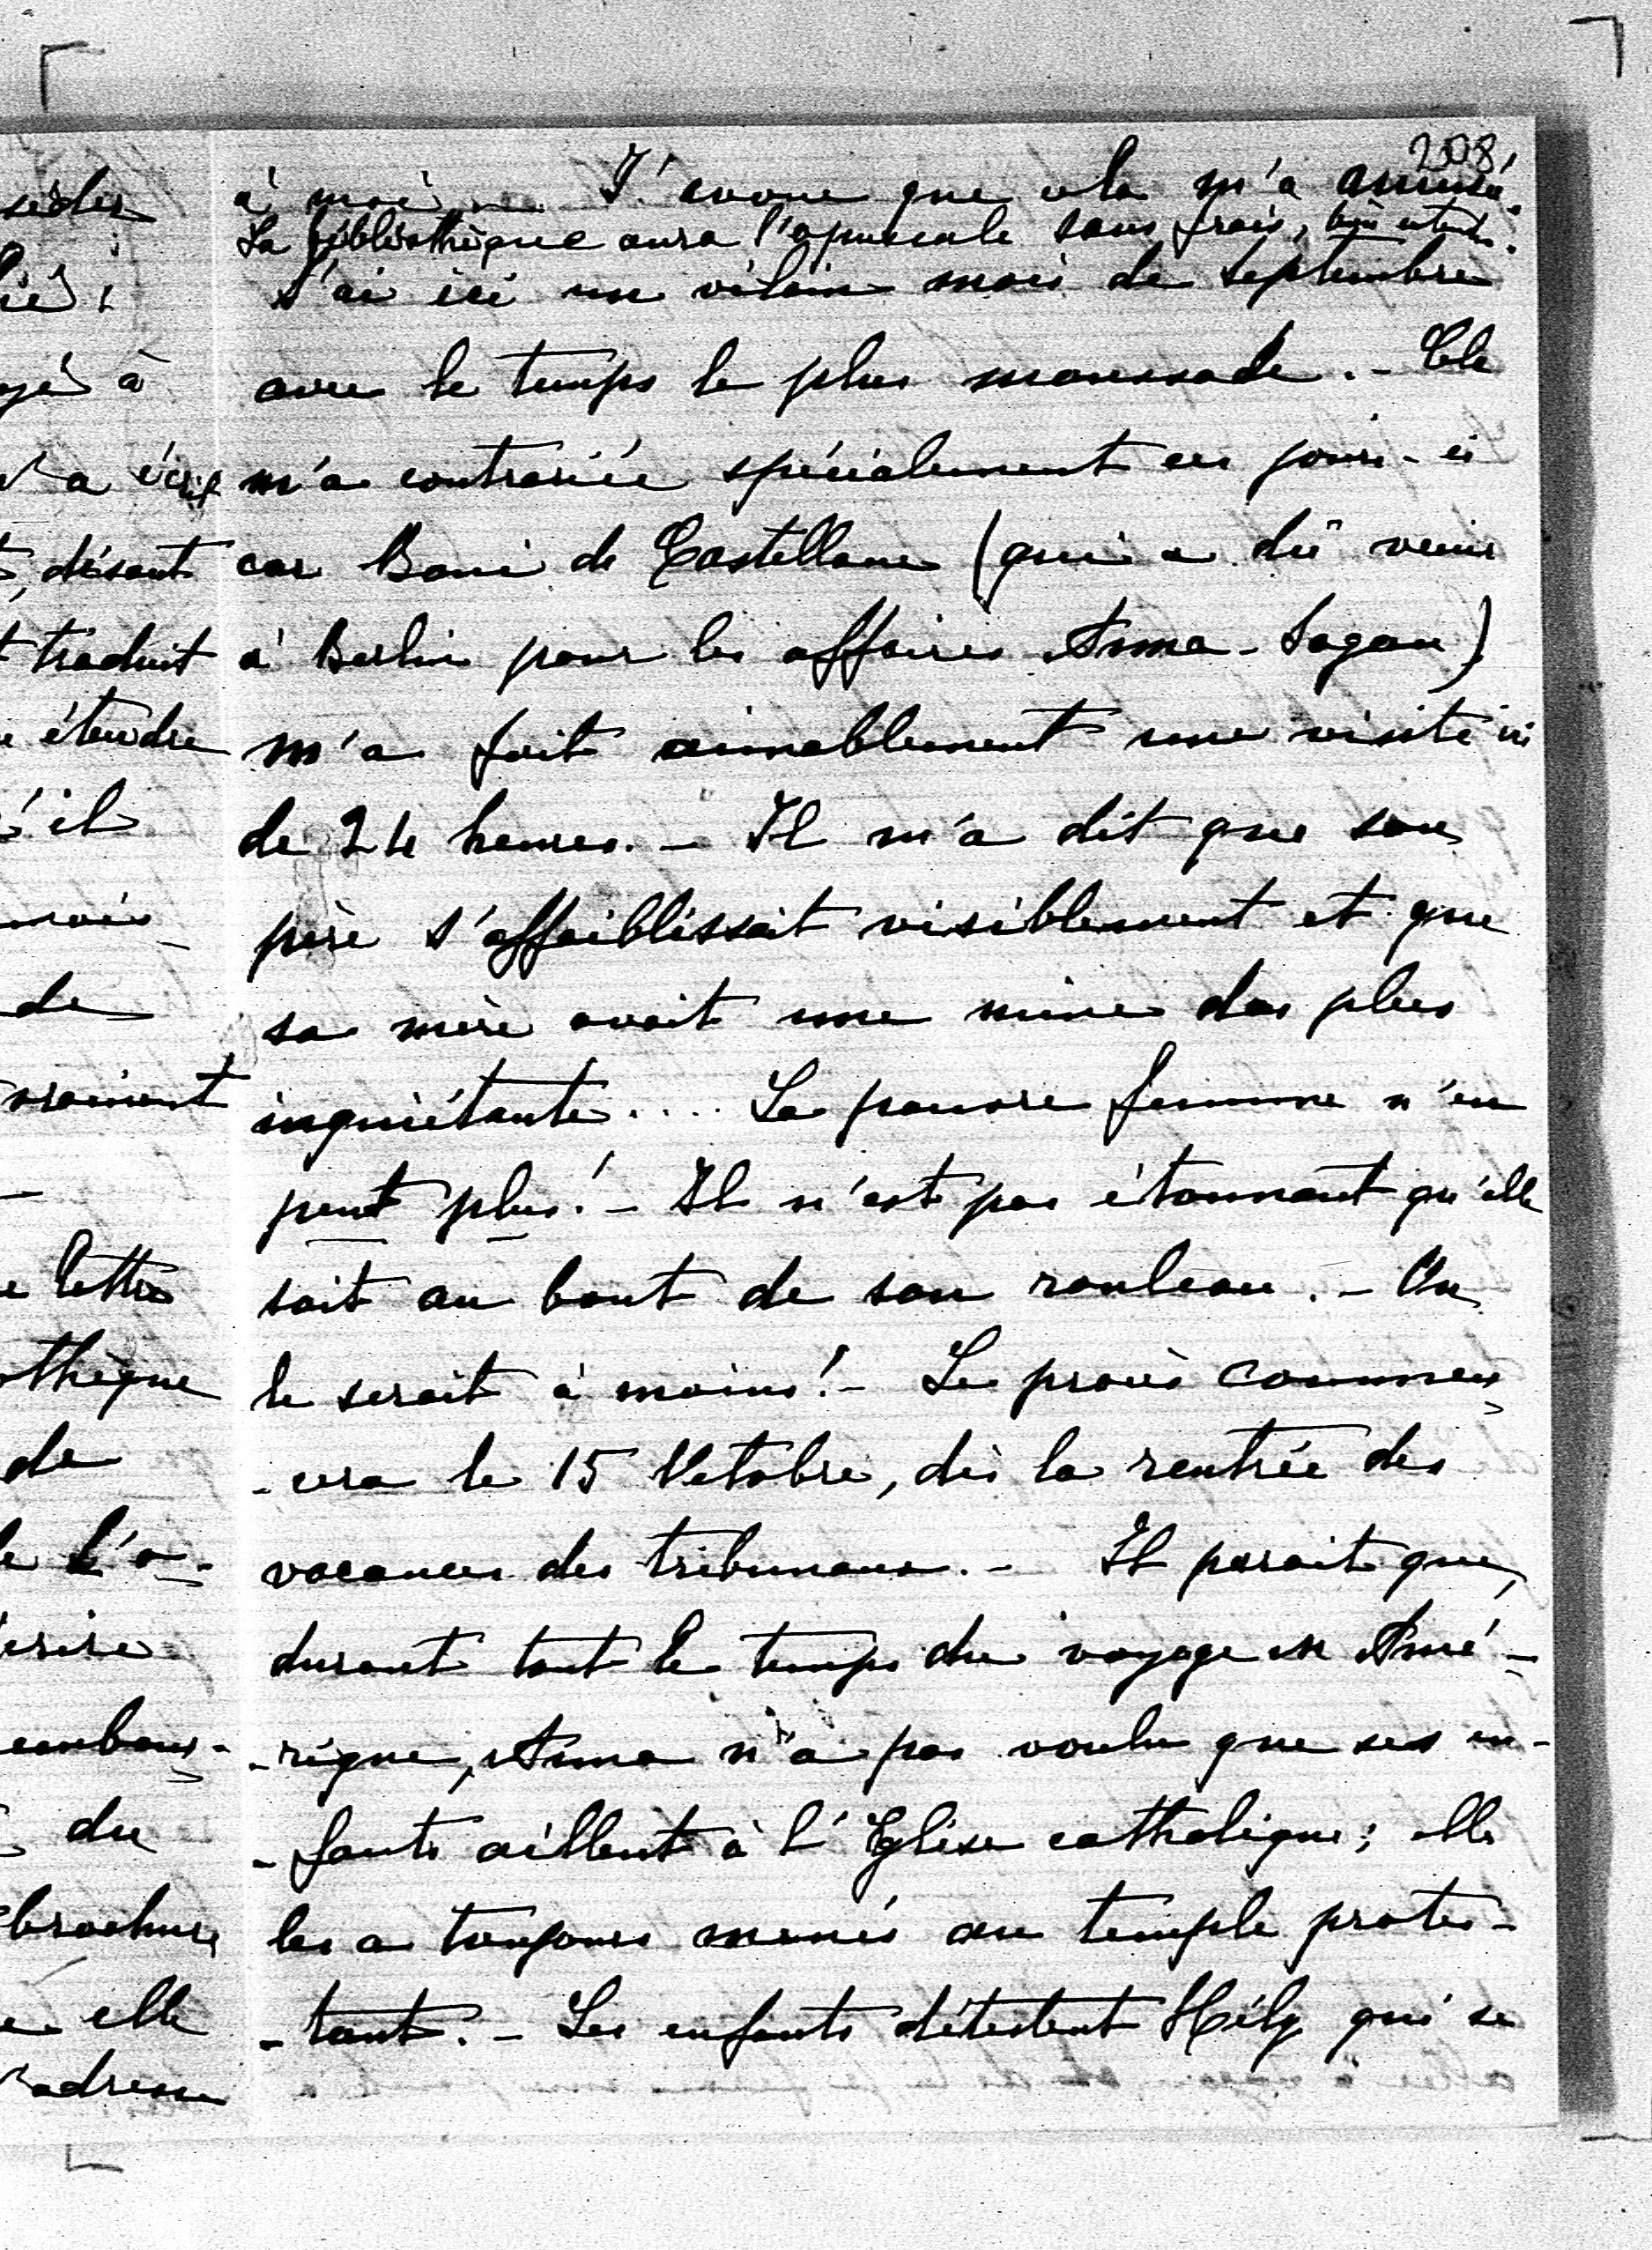 208
à moi. — J'avoue que cela m'a amusé.
La bibliothèque aura l'opuscule sans frais, bien entendu.
J'ai ici un vilain mois de septembre
avec le temps le plus maussade. - Cela
m'a contrariée spécialement ces jours-ci
car Boni de Castellane (qui a dû venir
à Berlin pour les affaires Anna-Sagan)
m'a fait aimablement une visite ici
de 24 heures. - Il m'a dit que son
père s'affaiblissait visiblement et que
sa mère avait une mine des plus
inquiétante.... La pauvre femme n'en
peut plus! - Il n'est pas étonnant qu'elle
soit au bout de son rouleau. - On
le serait à moins! - Le procès commen-
-cera le 15 Octobre, dès la rentrée des
vacances des tribunaux. - Il parait que,
durant tout le temps du voyage en Amé-
-rique, Anna n'a pas voulu que ses en-
-fants aillent à l'Eglise catholique; elle
les a toujours menés au temple protes-
-tant. - Les enfants détestent Hély qui se
céder
à
a écrit
disant
traduit
étendre
'il
mois
de
vraiment
lettre
-thèque
de
l'o-
rembour-
du
brochure
elle
l'adresse